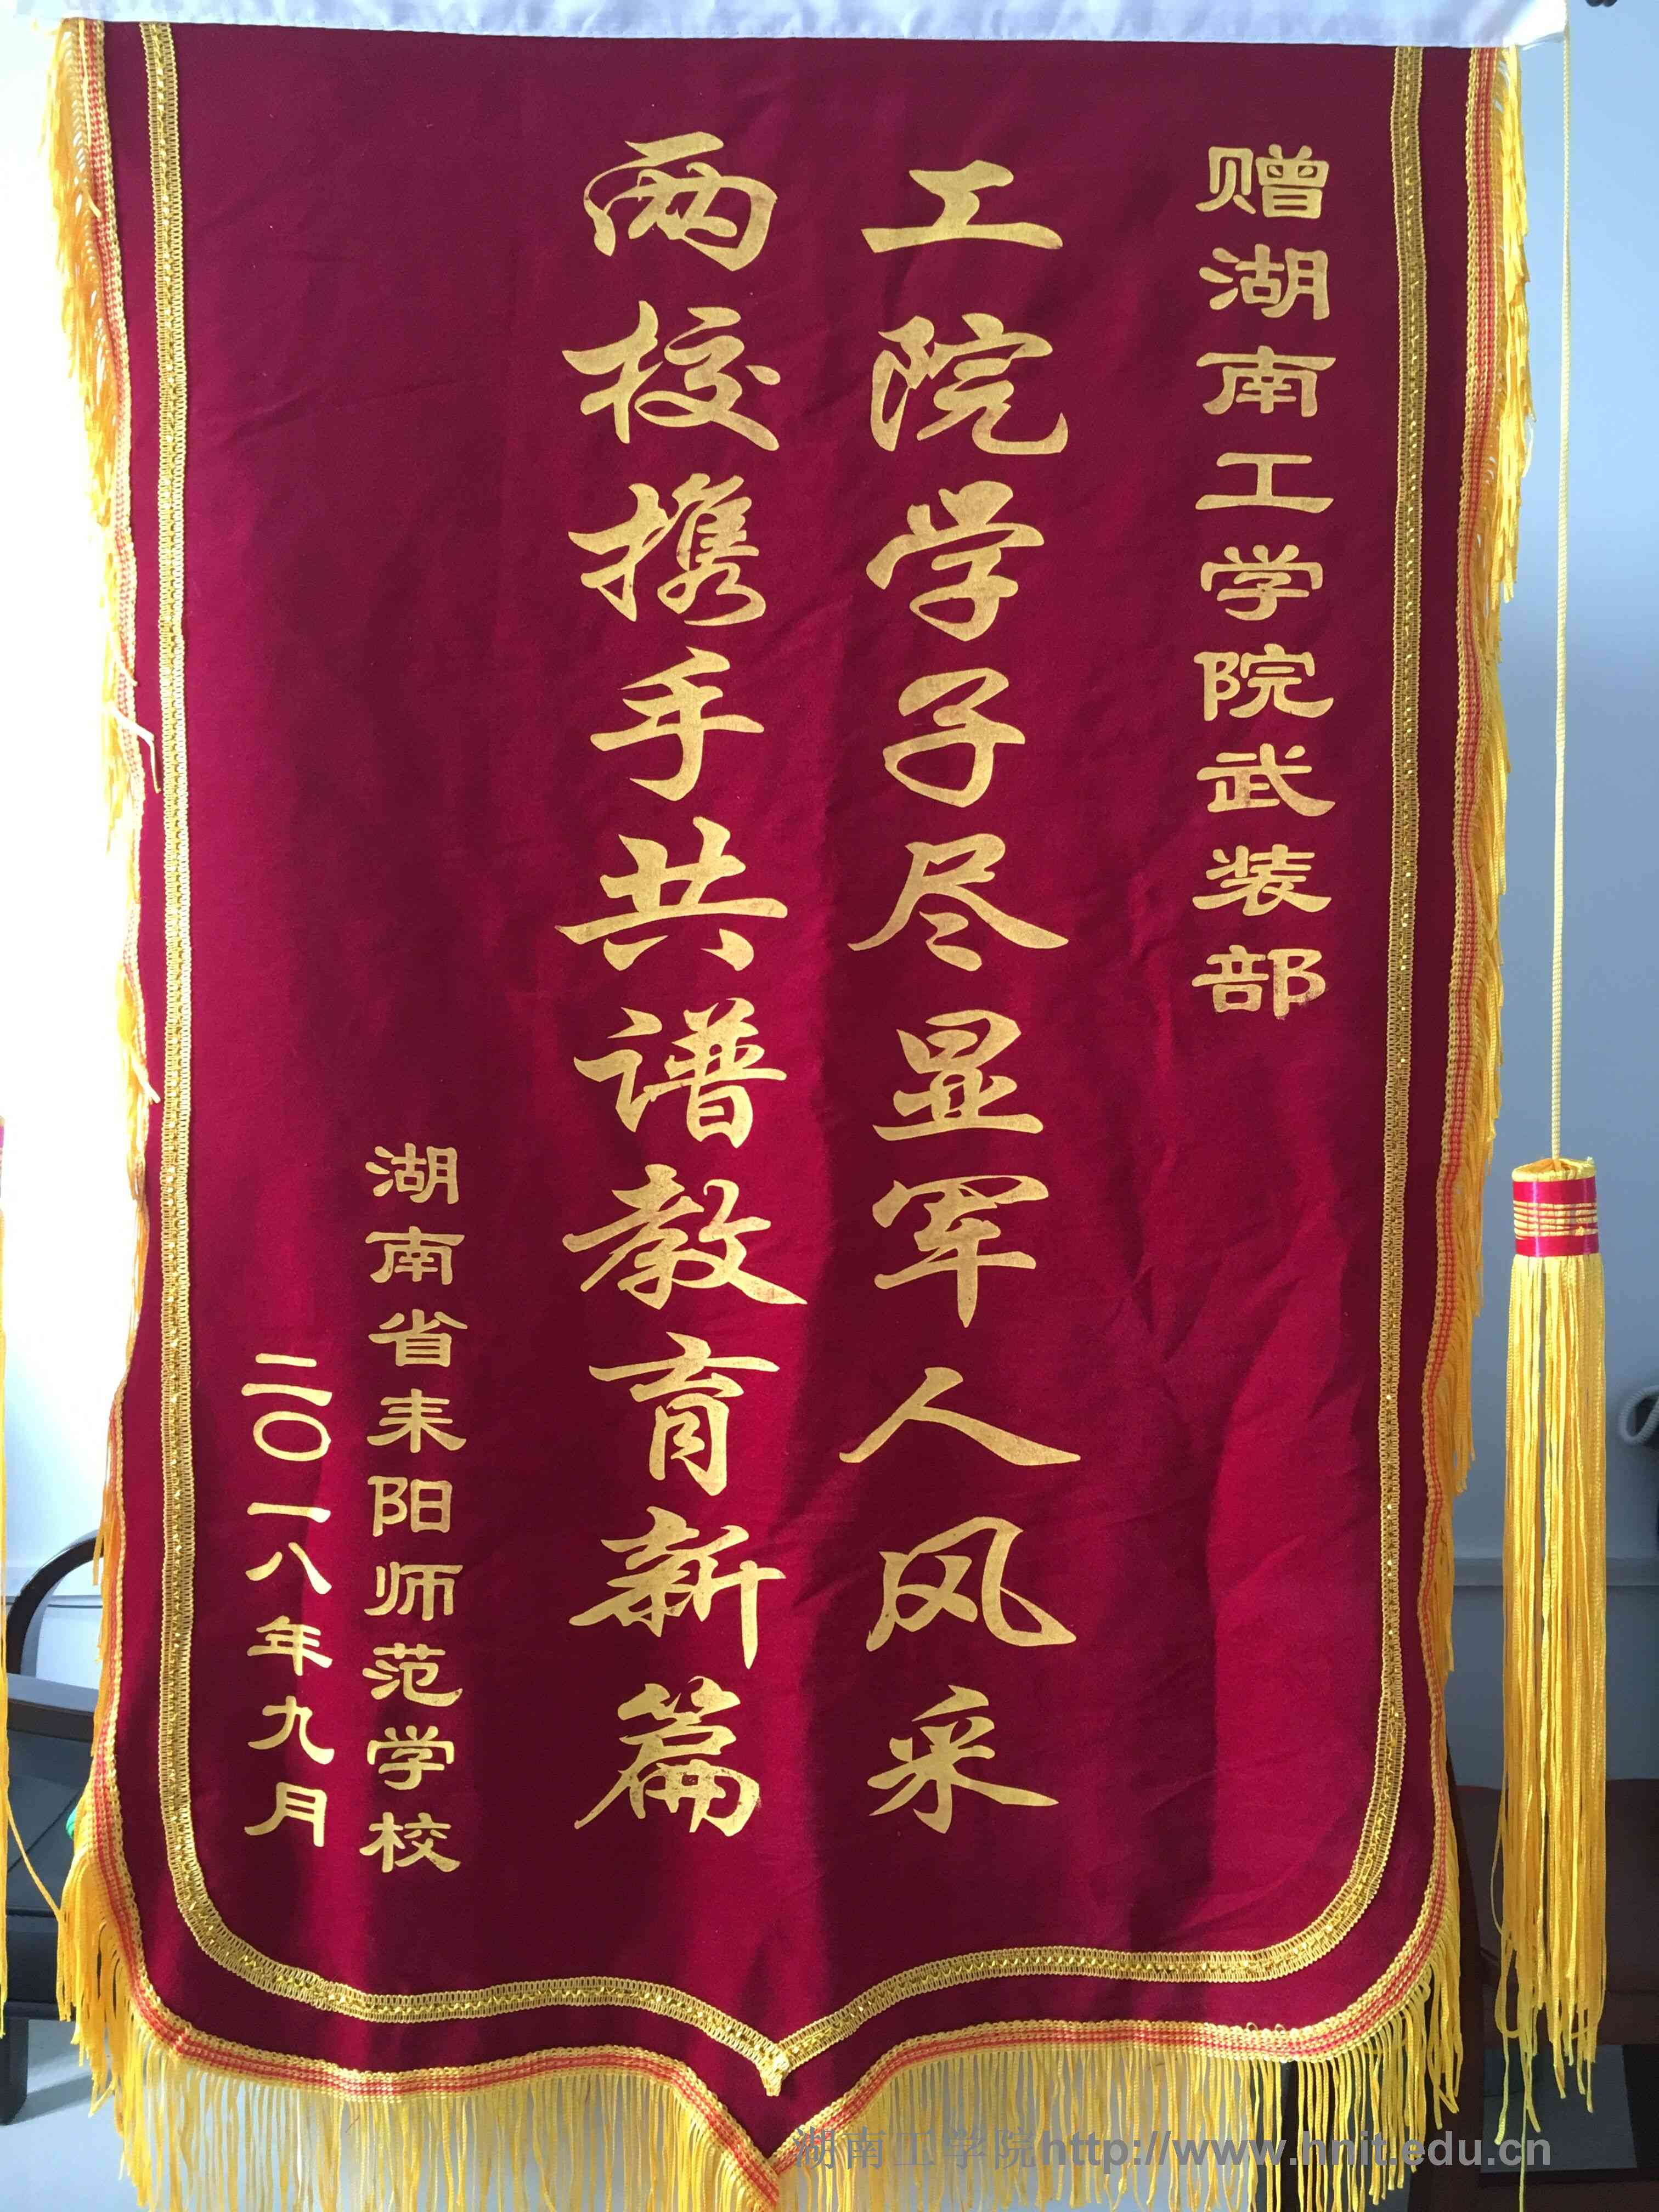 赠湖南工学院武装部
工院学子尽显军人风采
两校携手共谱教育新篇
湖南省耒阳师范学校
二〇一八年九月
湖南工学院http://www.hnit.edu.cn